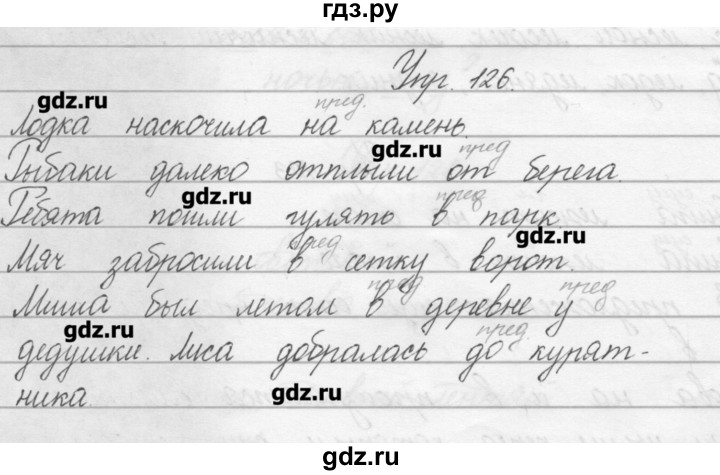 гдз.ру
Упр. 126.
gdz.ru
пред.
Лодка наскочила на камень.
gdz.ru пред
Рыбаки далеко отплыли от берега.
gdz.ru пред
Ребята пошли гулять в парк
пред gdz.ru
Мяч забросили в сетку ворот.
пред пред
Миша был летом в деревне у
gdz.ru пред.
дедушки. Лиса добралась до курят-
ника.
gdz.ru
gdz.ru